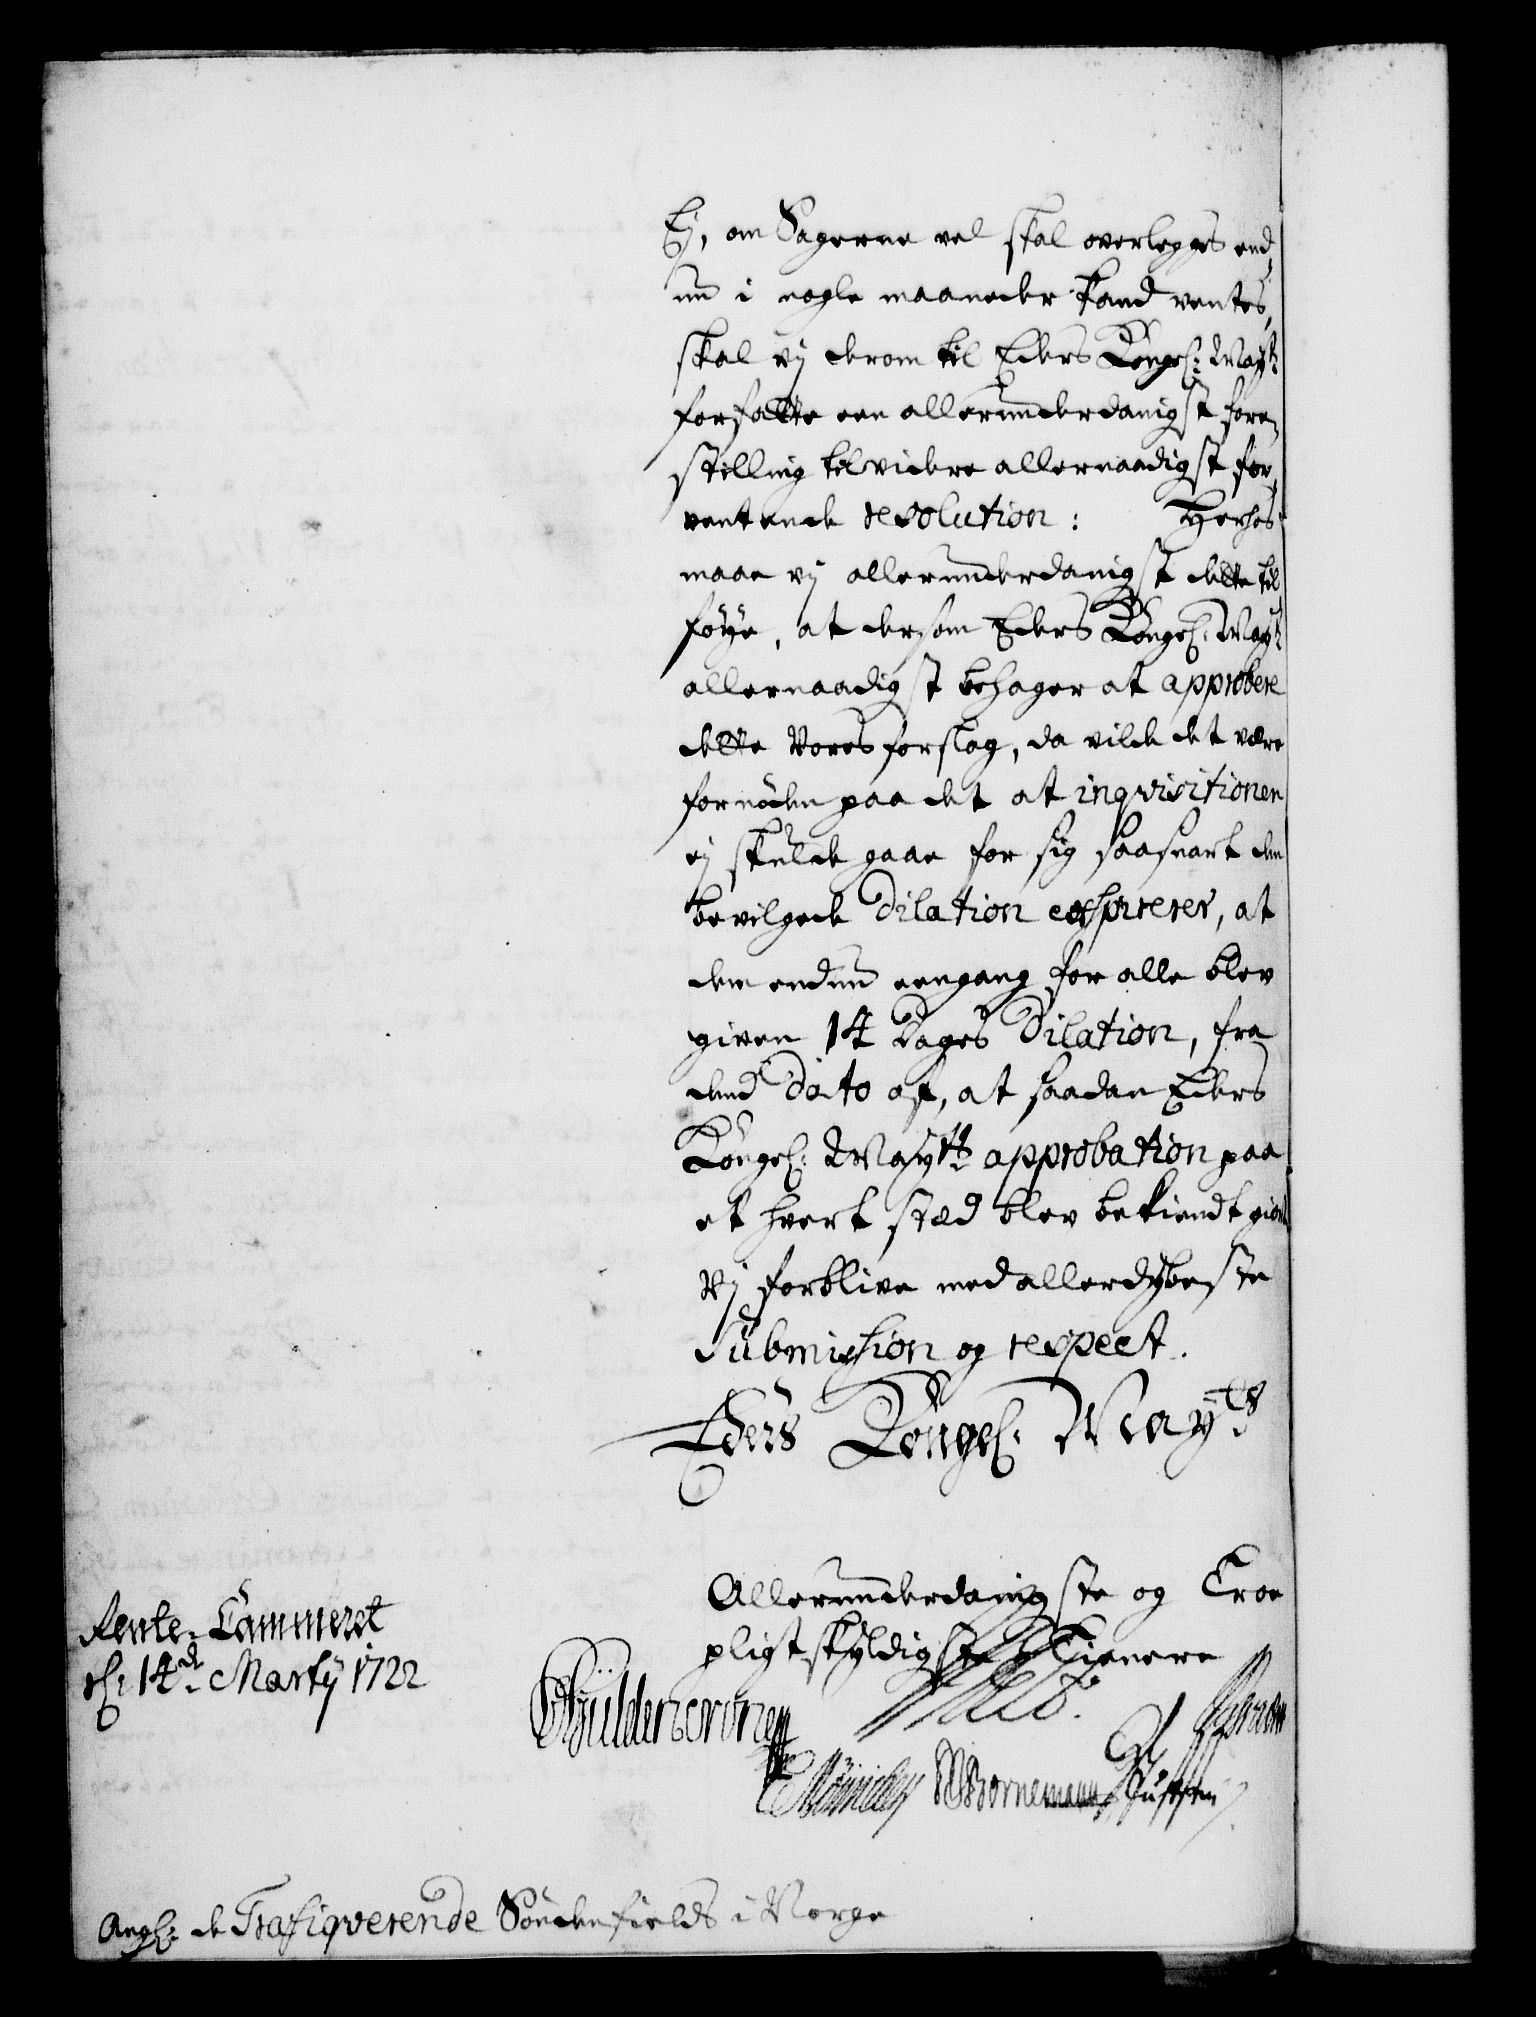 Ej, om Sagerne vel skal overlegges end,
nu i nogle maaneder kand ventes,
skal vj derom til Eders Kongel: Mayt:
forfatte een allerunderdanigst fore,
stilling til videre allernaadigst for,
ventende resolution: Herhos
maae vj allerunderdanigst dette til
føÿe, at dersom Eders Kongel: Mayt:
allernaadigst behager at approbere
dette Vores forslag, da vilde det være
fornøden paa det at inqvisitionen
ej skulde gaae for sig saasnart den
bevilgede Dilation exspirerer, at
dem endnu eengang for alle blev
given 14 Dages Dilation, fra
dend Dato af, at saadan Eders
Kongel: Mayts: approbation paa
et hvert stæd blev bekiendt giort
Vj forblive med allerdÿbeste
Submission og respect.
Eders Kongel: Mayts
Allerunderdanigste og Troe
pligtskÿldigste Tienere
Rente-Cammeret
d: 14d. Martÿ 1722
Güldencrone
WBornemann
Angl: de Trafiqverende Søndenfields i Norge